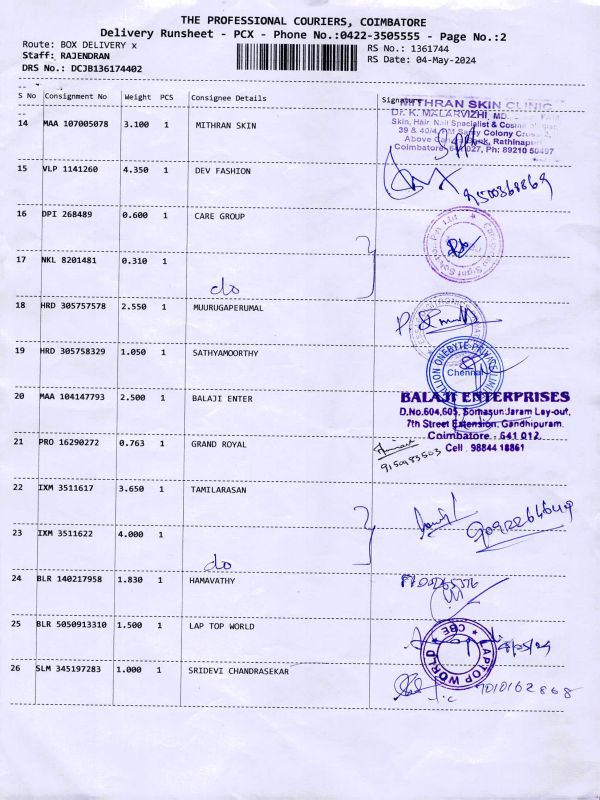 THE PROFESSIONAL COURIERS, COIMBATORE
Delivery Runsheet - PCX - Phone No.:0422-3505555 - Page No.:2
Route: BOX DELIVERY x
RS No.: 1361744
Staff: RAJENDRAN
RS Date: 04-May-2024
DRS No.: DCJB136174402
S No Consignment No Weight PCS Consignee Details Signature
14 MAA 107005078 3.100 1 MITHRAN SKIN
MITHRAN SKIN CLINIC
Dr. K. MALARVIZHI, MD.
Skin, Hair, Nail Specialist &
39 & 40/
Colony
Above
Coimbatore Ph: 89210 50497
15 VLP 1141260 4.350 1 DEV FASHION
9500368869
16 DPI 268489 0.600 1 CARE GROUP
17 NKL 8201481 0.310 1
do
18 HRD 305757578 2.550 1 MUURUGAPERUMAL
19 HRD 305758329 1.050 1 SATHYAMOORTHY
Chennai
20 MAA 104147793 2.500 1 BALAJI ENTER
BALAJI ENTERPRISES
D.No.604,605, Somasundaram Lay-out,
7th Street Extension, Gandhipuram.
Coimbatore - 641 012.
Cell : 98844 18861
21 PRO 16290272 0.763 1 GRAND ROYAL
22 IXM 3511617 3.650 1 TAMILARASAN
23 IXM 3511622 4.000 1
do
24 BLR 140217958 1.830 1 HAMAVATHY
25 BLR 5050913310 1.500 1 LAP TOP WORLD
LAPTOP WORLD CBE
26 SLM 345197283 1.000 1 SRIDEVI CHANDRASEKAR